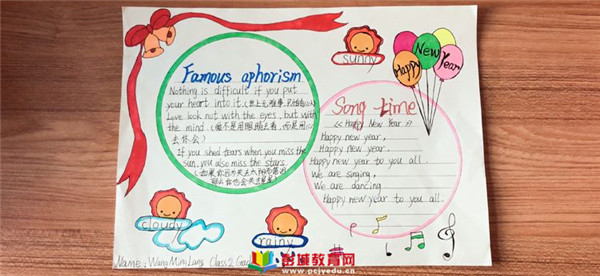 sunny
Happy
New
Year
Famous aphorism
Nothing is difficult if you put
your heart into it.(世上无难事,只怕有心人)
Love look not with the eyes, but with
the mind.(爱不是用眼睛去看,而是用心
去体会)
If you shed tears when you miss the
sun, you also miss the stars.
(如果你因为失去太阳而落泪
那么你也会失去星星)
Song time
《Happy New Year》
Happy new year,
Happy new year.
Happy new year to you all.
We are singing,
We are dancing
Happy new year to you all.
cloudy
rainy
Name: Wang Ming Class 2
教城教育网
www.pcjyedu.cn